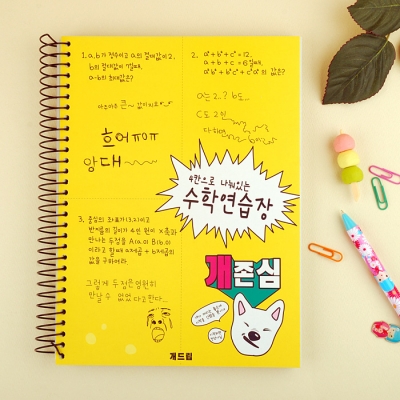 1. a, b가 정수이고 a의 절대값이 2.
b의 절대값이 7일때,
a-b의 최대값은?
아조아주 큰~ 값이지요
흐어ㅠㅠ
앙대
2. a²+b²+c²=12,
a+b+c=6일때,
a는 2..? b도..
c도 2인
다하면
3. 중심의 좌표가 (3, 2)이고
반지름의 길이가 4인 원이 X축과
만나는 두점을 A(a,0) B(b,0)
이라고 할때 a제곱 + b제곱의
값을 구하여라.
그렇게 두 점은 영원히
만날 수 없었다고한다...
4칸으로 나눠있는
수학연습장
개존심
개드립